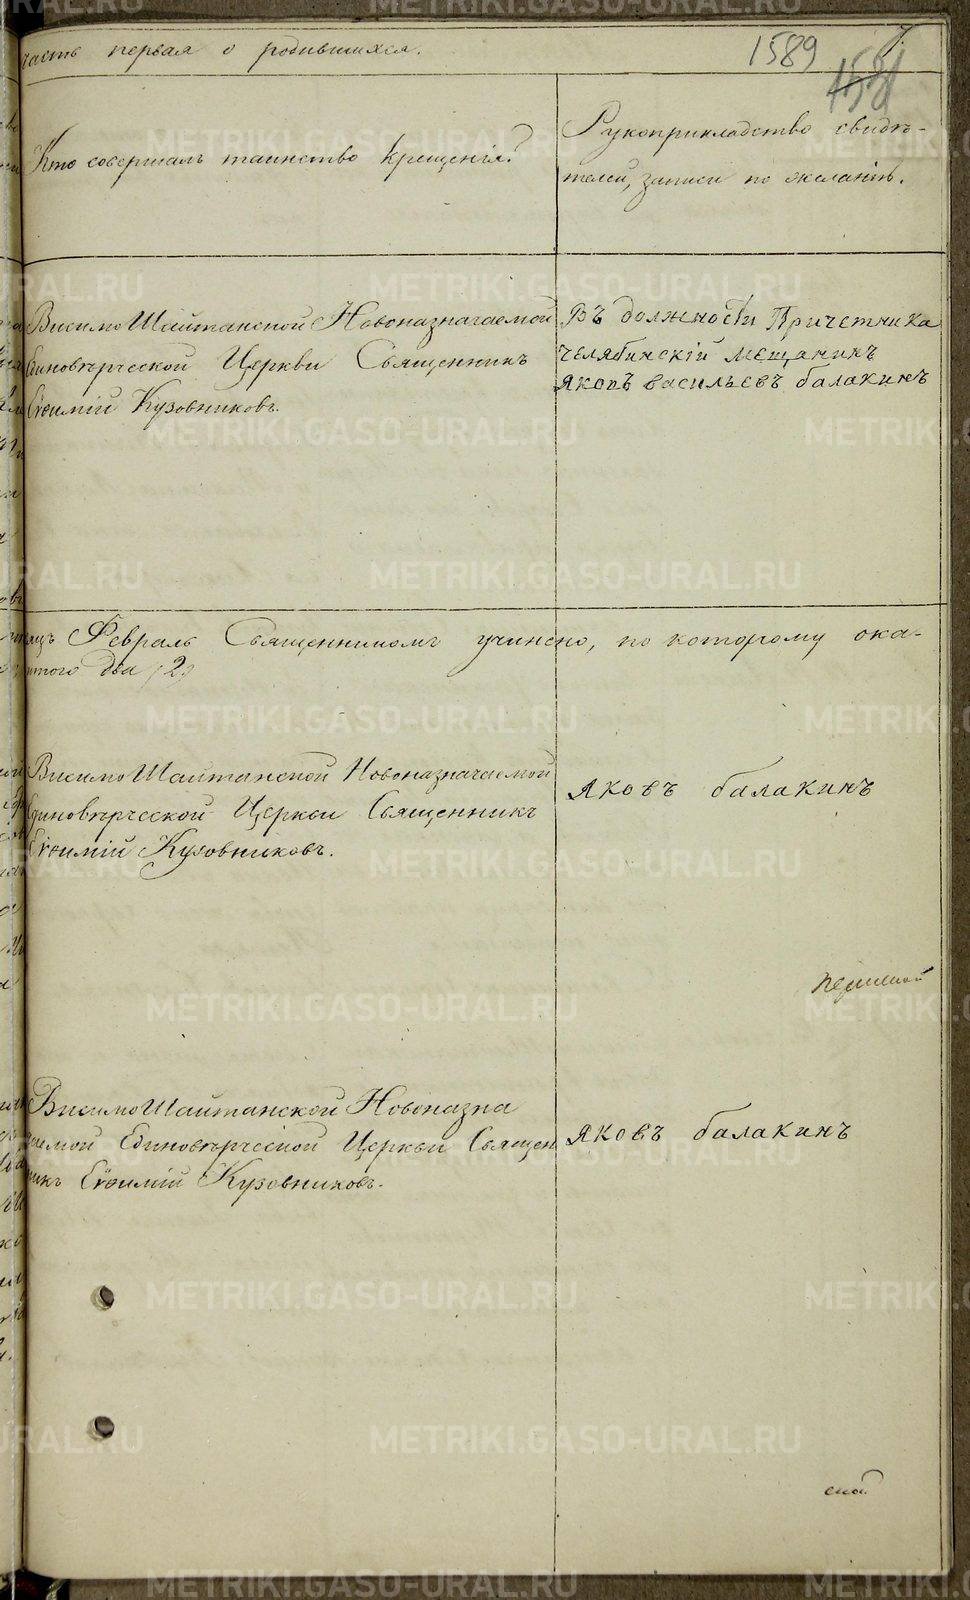 часть первая о родившихся.
1589
7.
Кто совершалъ таинство крещенія?
Рукоприкладство свидѣ-
телей, записи по желанію.
Висимо Шайтанской Новоназначаемой
Единовѣрческой Церкви Священникъ
Евѳимій Кузовниковъ.
Въ должности Причетника
челябинскій мещанинъ
яковъ васильевъ балакинъ
Февраль Священникомъ учинено, по которому ока-
два (2)
Висимо Шайтанской Новоназначаемой
Единовѣрческой Церкви Священникъ
Евѳимій Кузовниковъ.
яковъ балакинъ
Висимо Шайтанской Новоназна
чаемой Единовѣрческой Церкви Священ
никъ Евѳимій Кузовниковъ.
яковъ балакинъ
METRIKI.GASO-URAL.RU